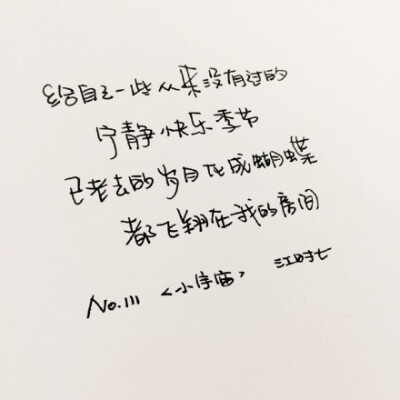 给自己一些从来没有过的
宁静快乐季节
已老去的岁月化成蝴蝶
都飞翔在我的房间
No.111 <小宇宙> 江时七